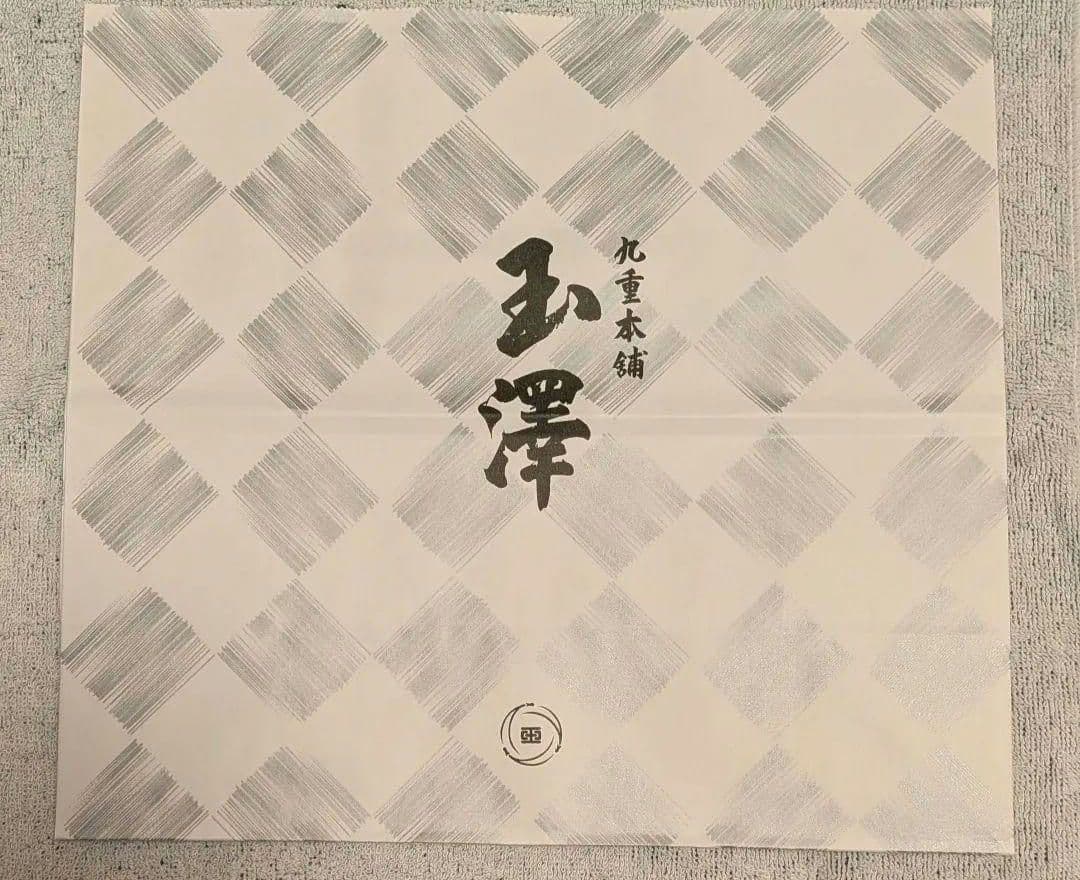 九重本舗
玉澤